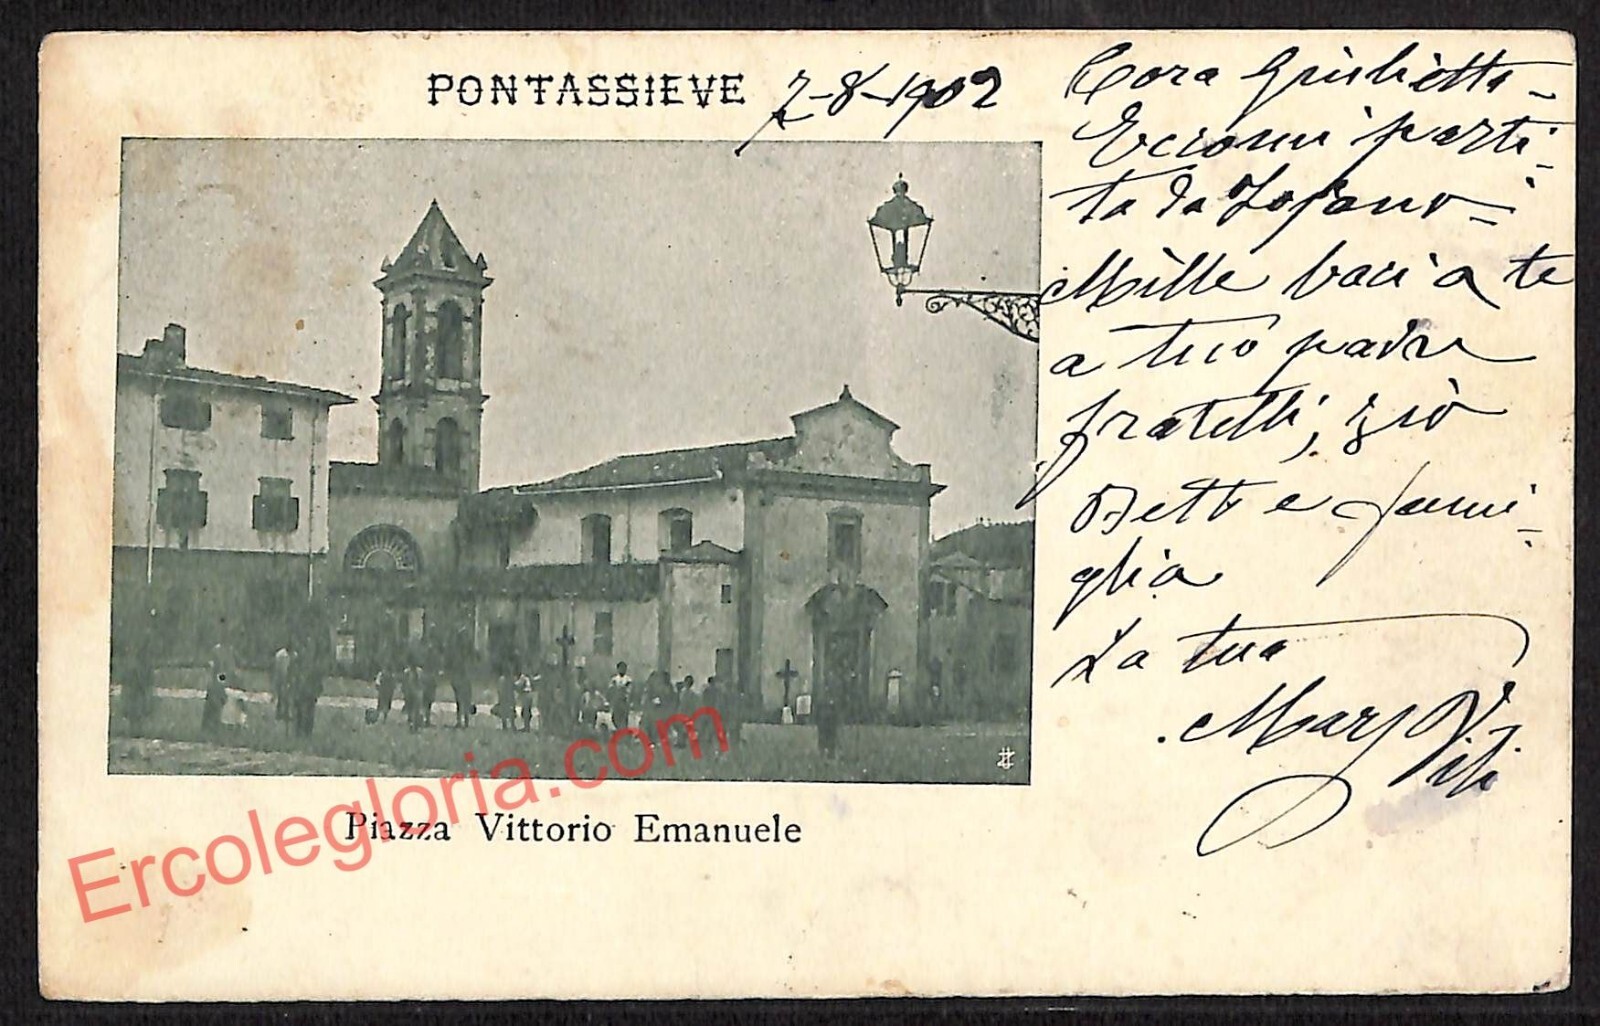 PONTASSIEVE 7-8-1902
Cara Giulietta
Eccomi parti-
ta da
Mille baci a te
a tuo padre
fratelli, zio
Betti e fami-
glia
La tua
Mary
Piazza Vittorio Emanuele
Ercolegloria.com